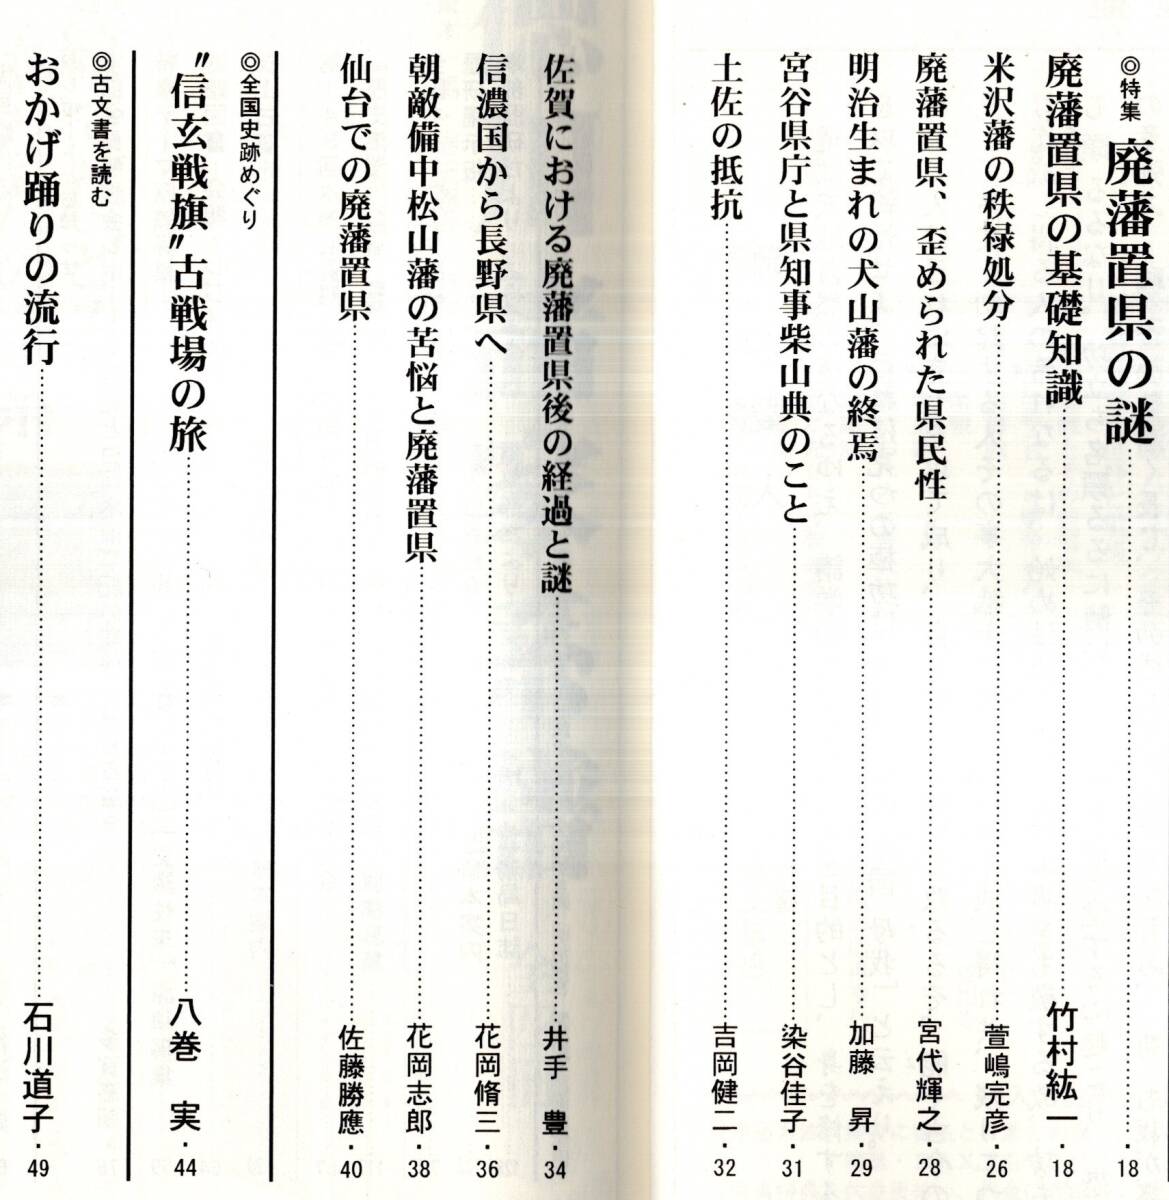 ◎特集 廃藩置県の謎……18
廃藩置県の基礎知識……竹村紘一・18
米沢藩の秩禄処分……萱嶋完彦・26
廃藩置県、歪められた県民性……宮代輝之・28
明治生まれの犬山藩の終焉……加藤 昇・29
宮谷県庁と県知事柴山典のこと……染谷佳子・31
土佐の抵抗……吉岡健二・32
佐賀における廃藩置県後の経過と謎……井手 豊・34
信濃国から長野県へ……花岡脩三・36
朝敵備中松山藩の苦悩と廃藩置県……花岡志郎・38
仙台での廃藩置県……佐藤勝應・40
◎全国史跡めぐり
〝信玄戦旗〟古戦場の旅……八巻 実・44
◎古文書を読む
おかげ踊りの流行……石川道子・49